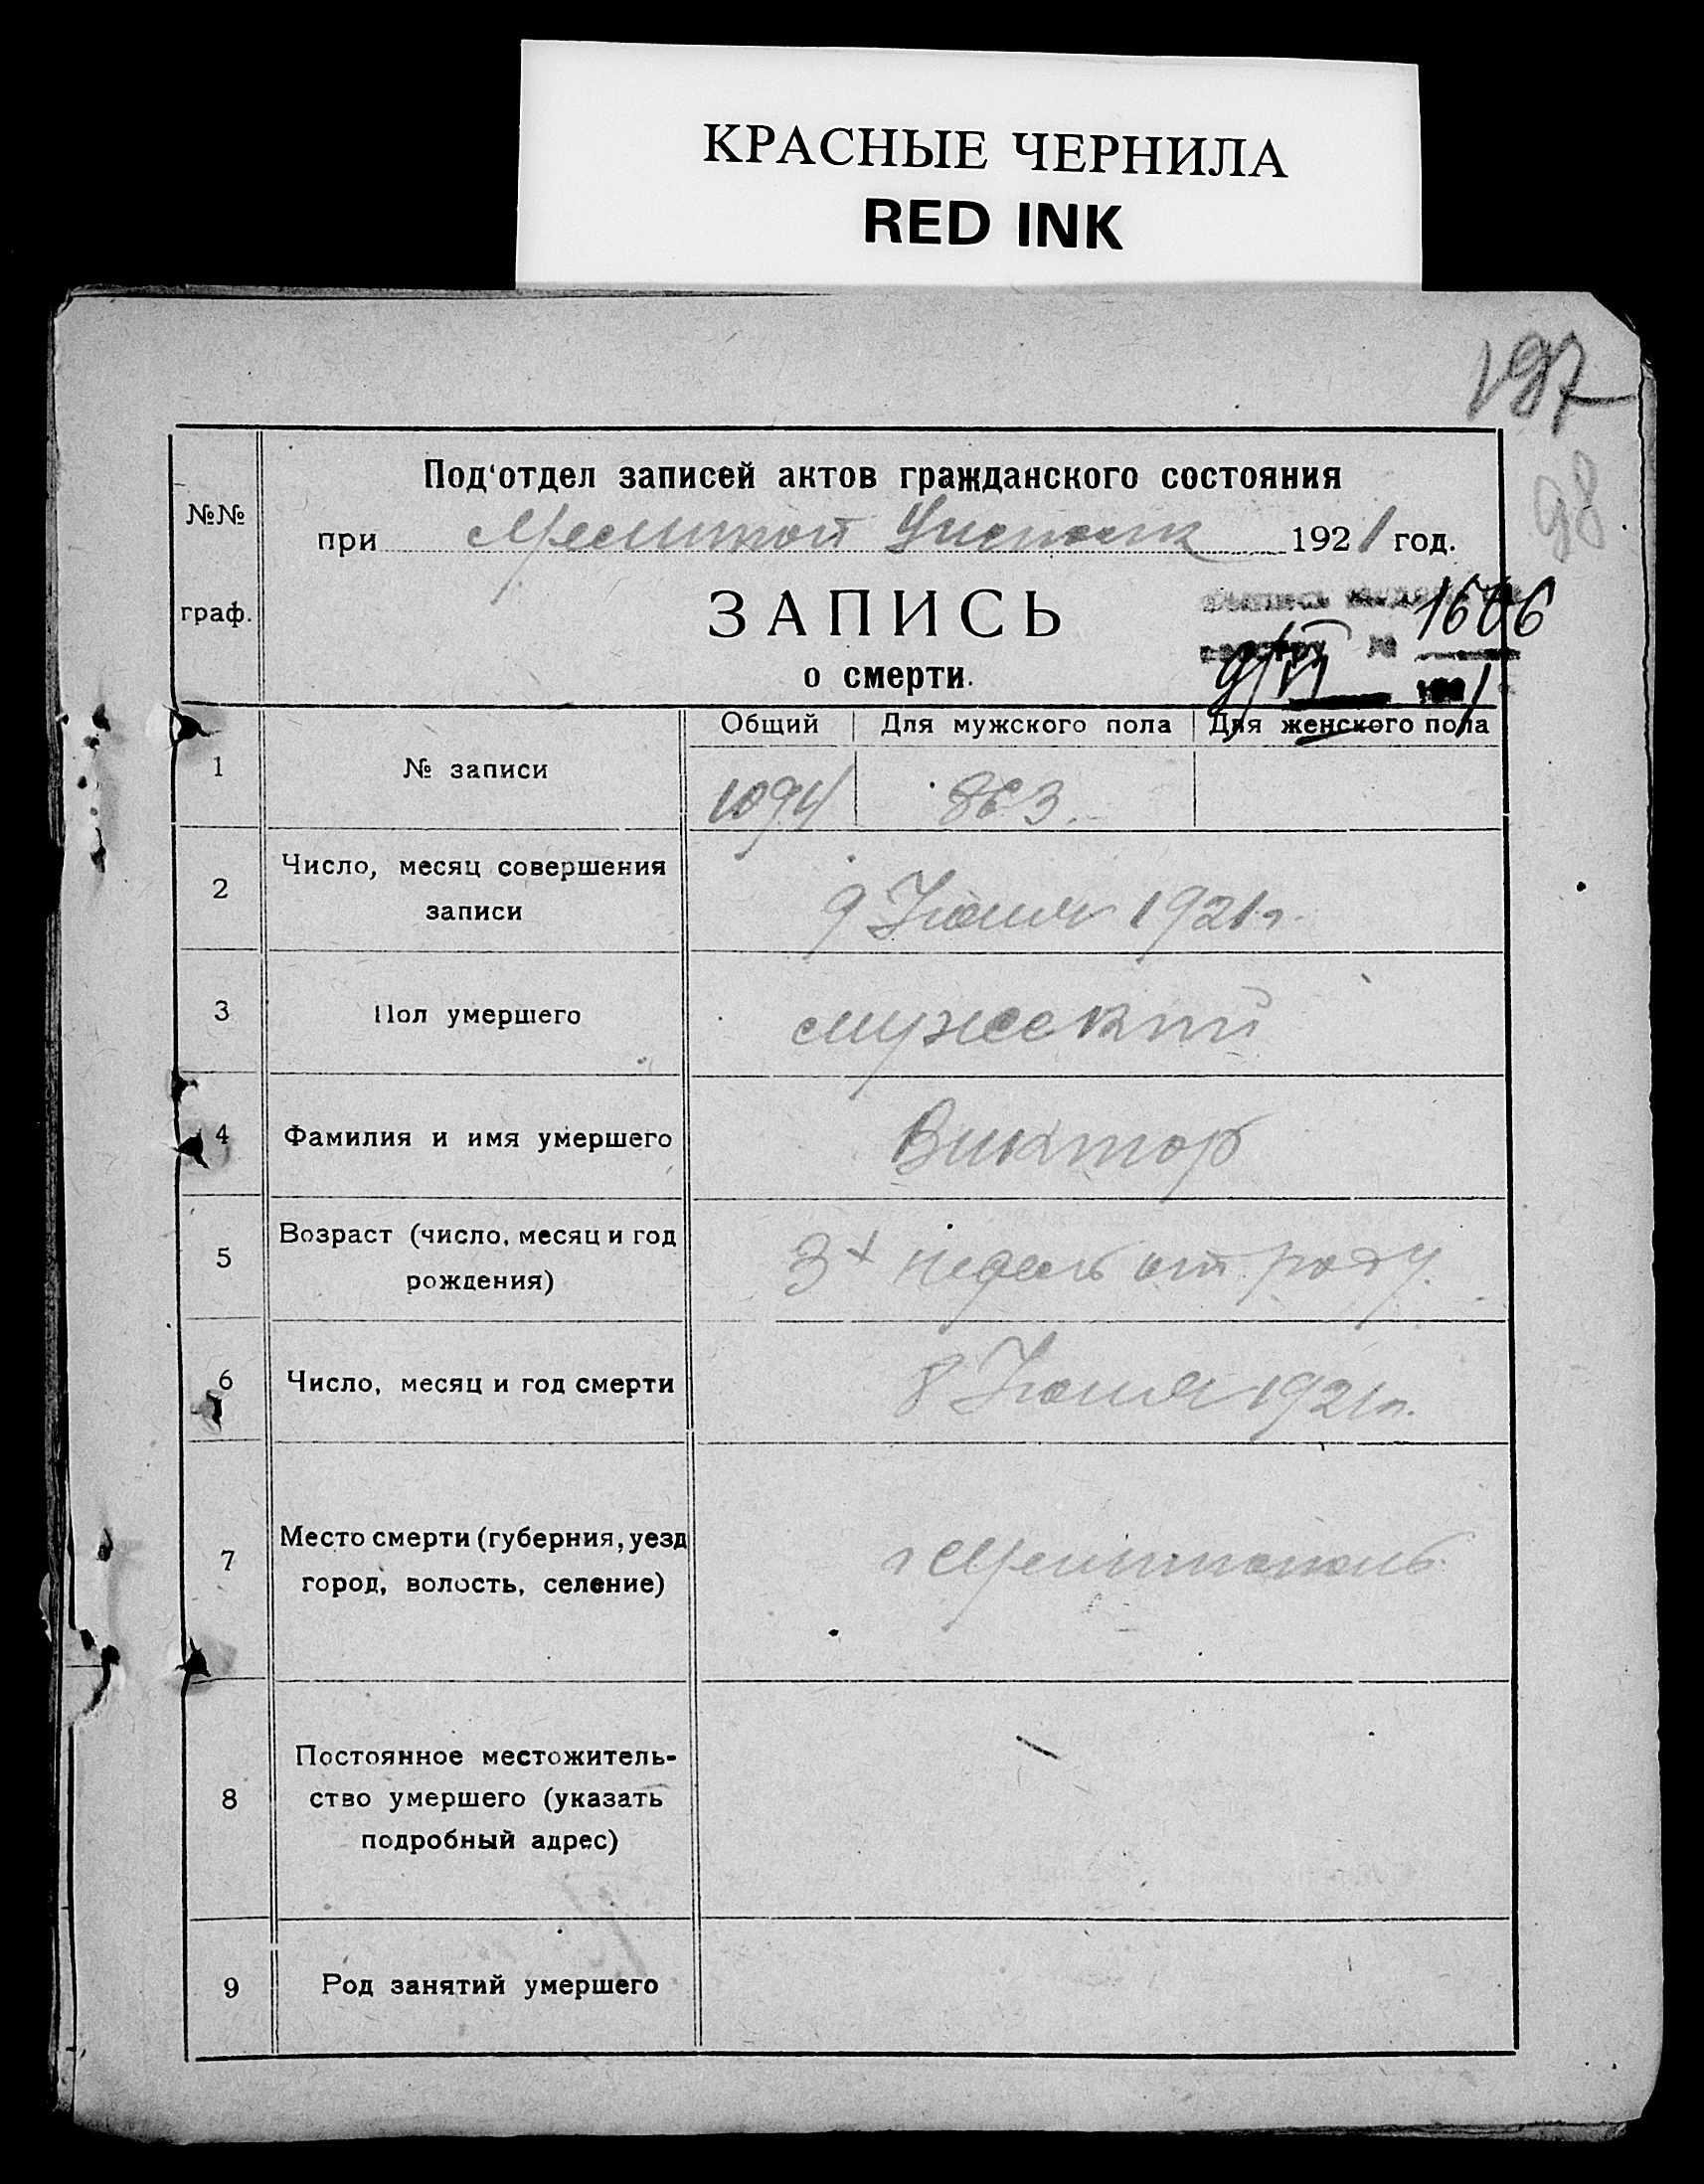 КРАСНЫЕ ЧЕРНИЛА
RED INK
197
98
Под'отдел записей актов гражданского состояния
№№
при 1921 год.
граф.
ЗАПИСЬ
1606
о смерти.
9/VI
Общий Для мужского пола Для женского пола
1 № записи 1094 863.
2 Число, месяц совершения записи 9 Июня 1921г.
3 Пол умершего мужеский
4 Фамилия и имя умершего Виктор
5 Возраст (число, месяц и год рождения) 3х недель от роду.
6 Число, месяц и год смерти 8 Июня 1921г.
7 Место смерти (губерния, уезд город, волость, селение) г Мелитополь
8 Постоянное местожитель-
ство умершего (указать
подробный адрес)
9 Род занятий умершего